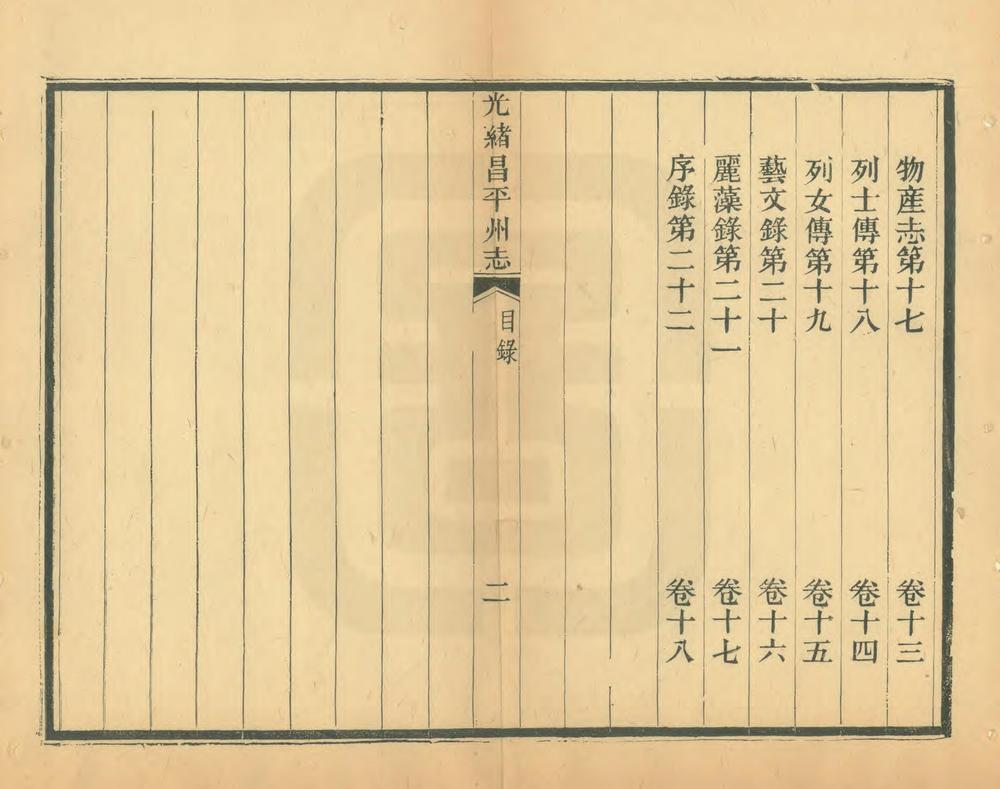 物產志第十七 卷十三
列士傳第十八 卷十四
列女傳第十九 卷十五
藝文錄第二十 卷十六
麗藻錄第二十一 卷十七
序錄第二十二 卷十八
光緒昌平州志 目錄 二